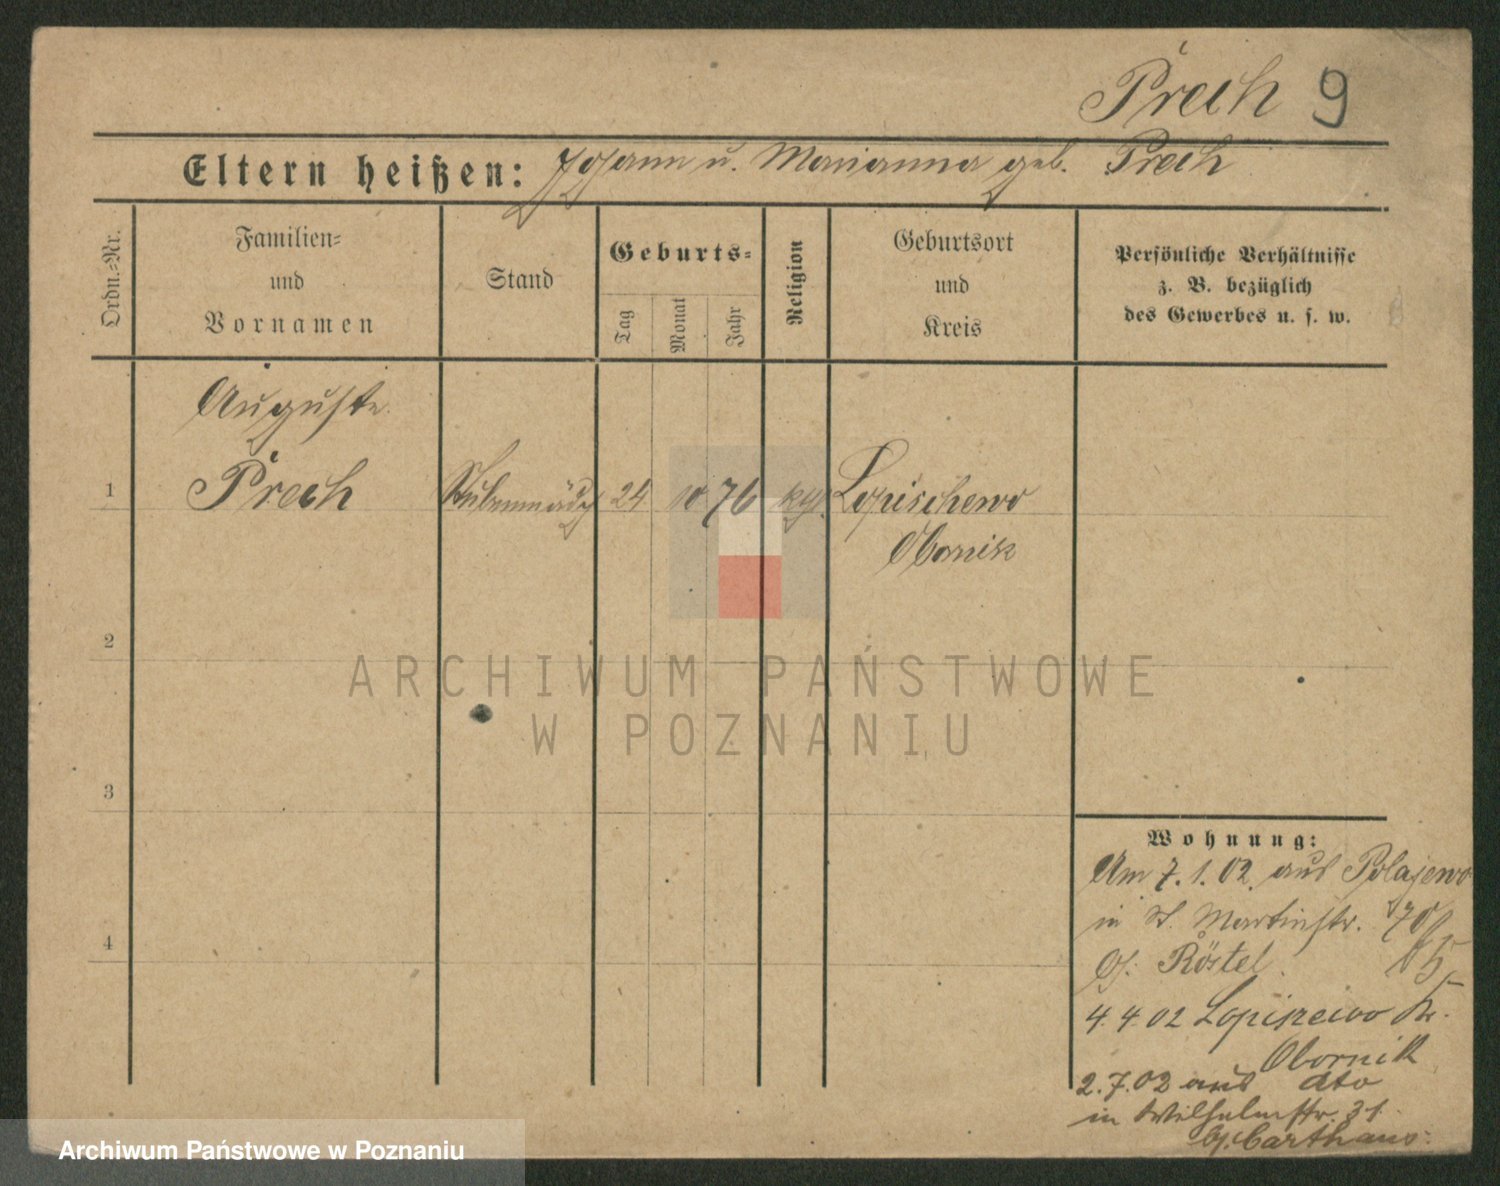 Prech 9
Eltern heißen: Johann u. Marianna geb. Prech
Ordn.=Nr.
Familien=
und
Vornamen
Stand
Geburts=
Tag
Monat
Jahr
Religion
Geburtsort
und
Kreis
Persönliche Verhältnisse
z. B. bezüglich
des Gewerbes u. s. w.
Auguste
1 Prech Stubenmädch 24 10 76 kth. Lopischewo
Obornik
2
3
4
Wohnung:
Am 7.1.02. aus Polajewo
in St. Martinstr. 70
bei Röstel.
4.4.02 Lopiszewo Kr.
Obornik
2.7.02 aus dto
in Wilhelmstr. 31.
b. Carthaus.
ARCHIWUM PAŃSTWOWE
W POZNANIU
Archiwum Państwowe w Poznaniu